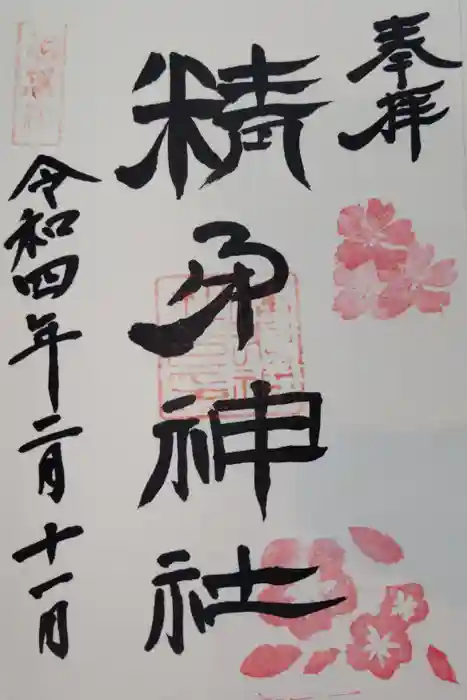 奉拝
精矛神社
令和四年二月十一月